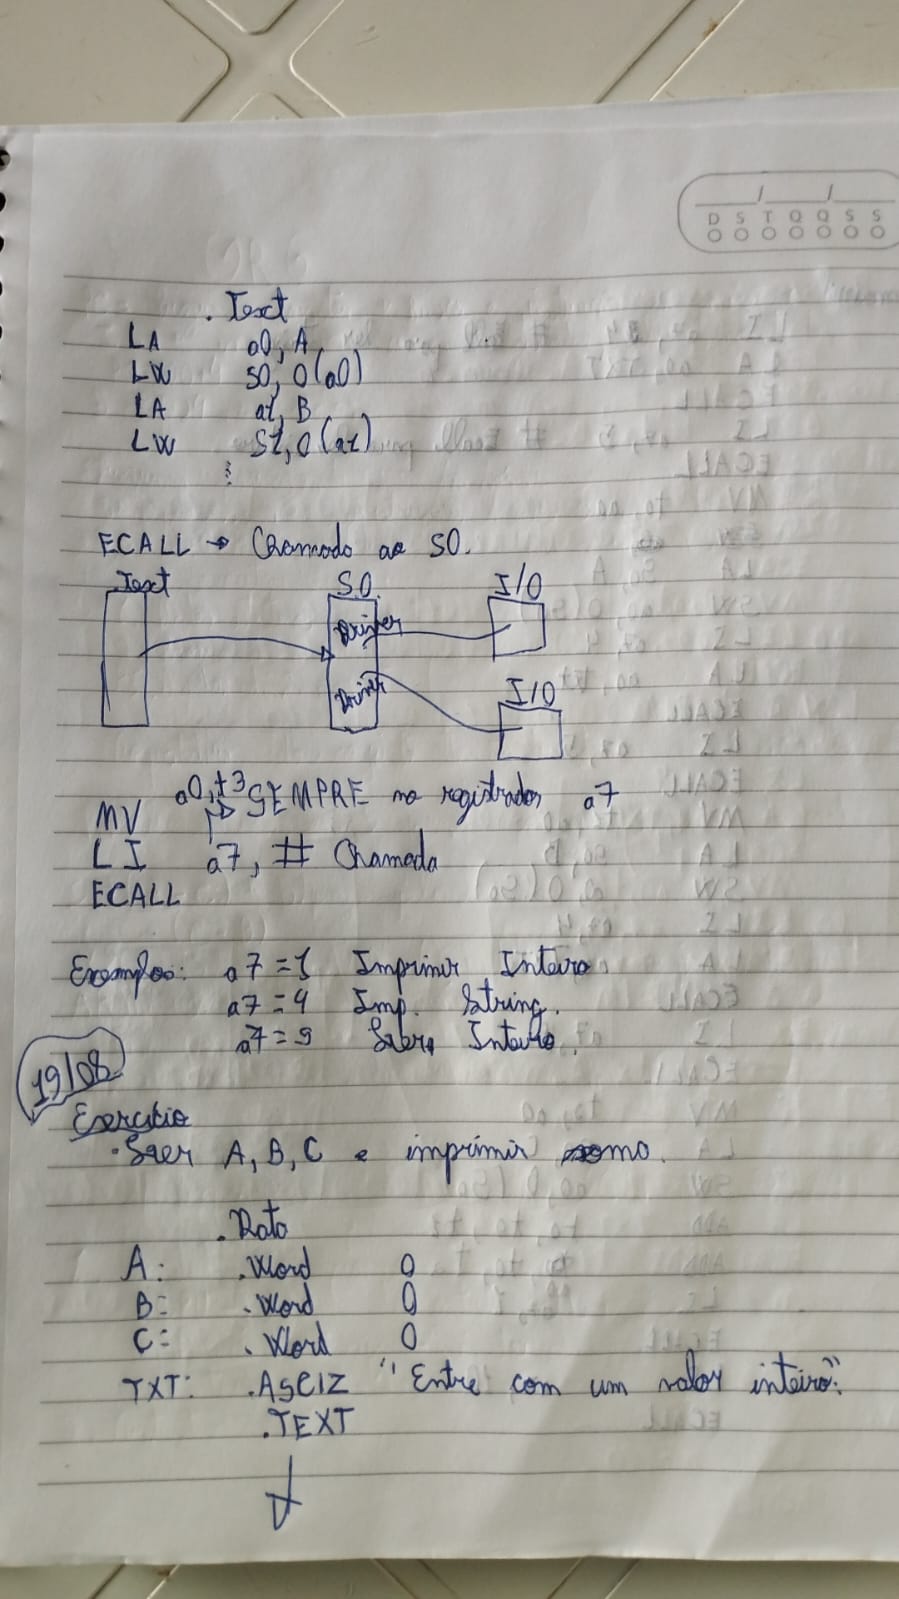 D S T Q Q S S
.Text
LA a0, A
LW s0, 0(a0)
LA a1, B
LW S1, 0(a1)
ECALL → Chamado ao SO.
Text S.O. I/O
Driver
Driver I/O
MV a0, t3 SEMPRE no registrador a7
LI a7, # Chamada
ECALL
Exemplos: a7 = 1 Imprimir Inteiro
a7 = 4 Imp. String.
a7 = 5 Inteiro.
19/08
Exercício
A, B, C e imprimir
.Data
A: .Word 0
B: .Word 0
C: .Word 0
TXT: .ASCIZ "Entre com um valor inteiro:"
.TEXT